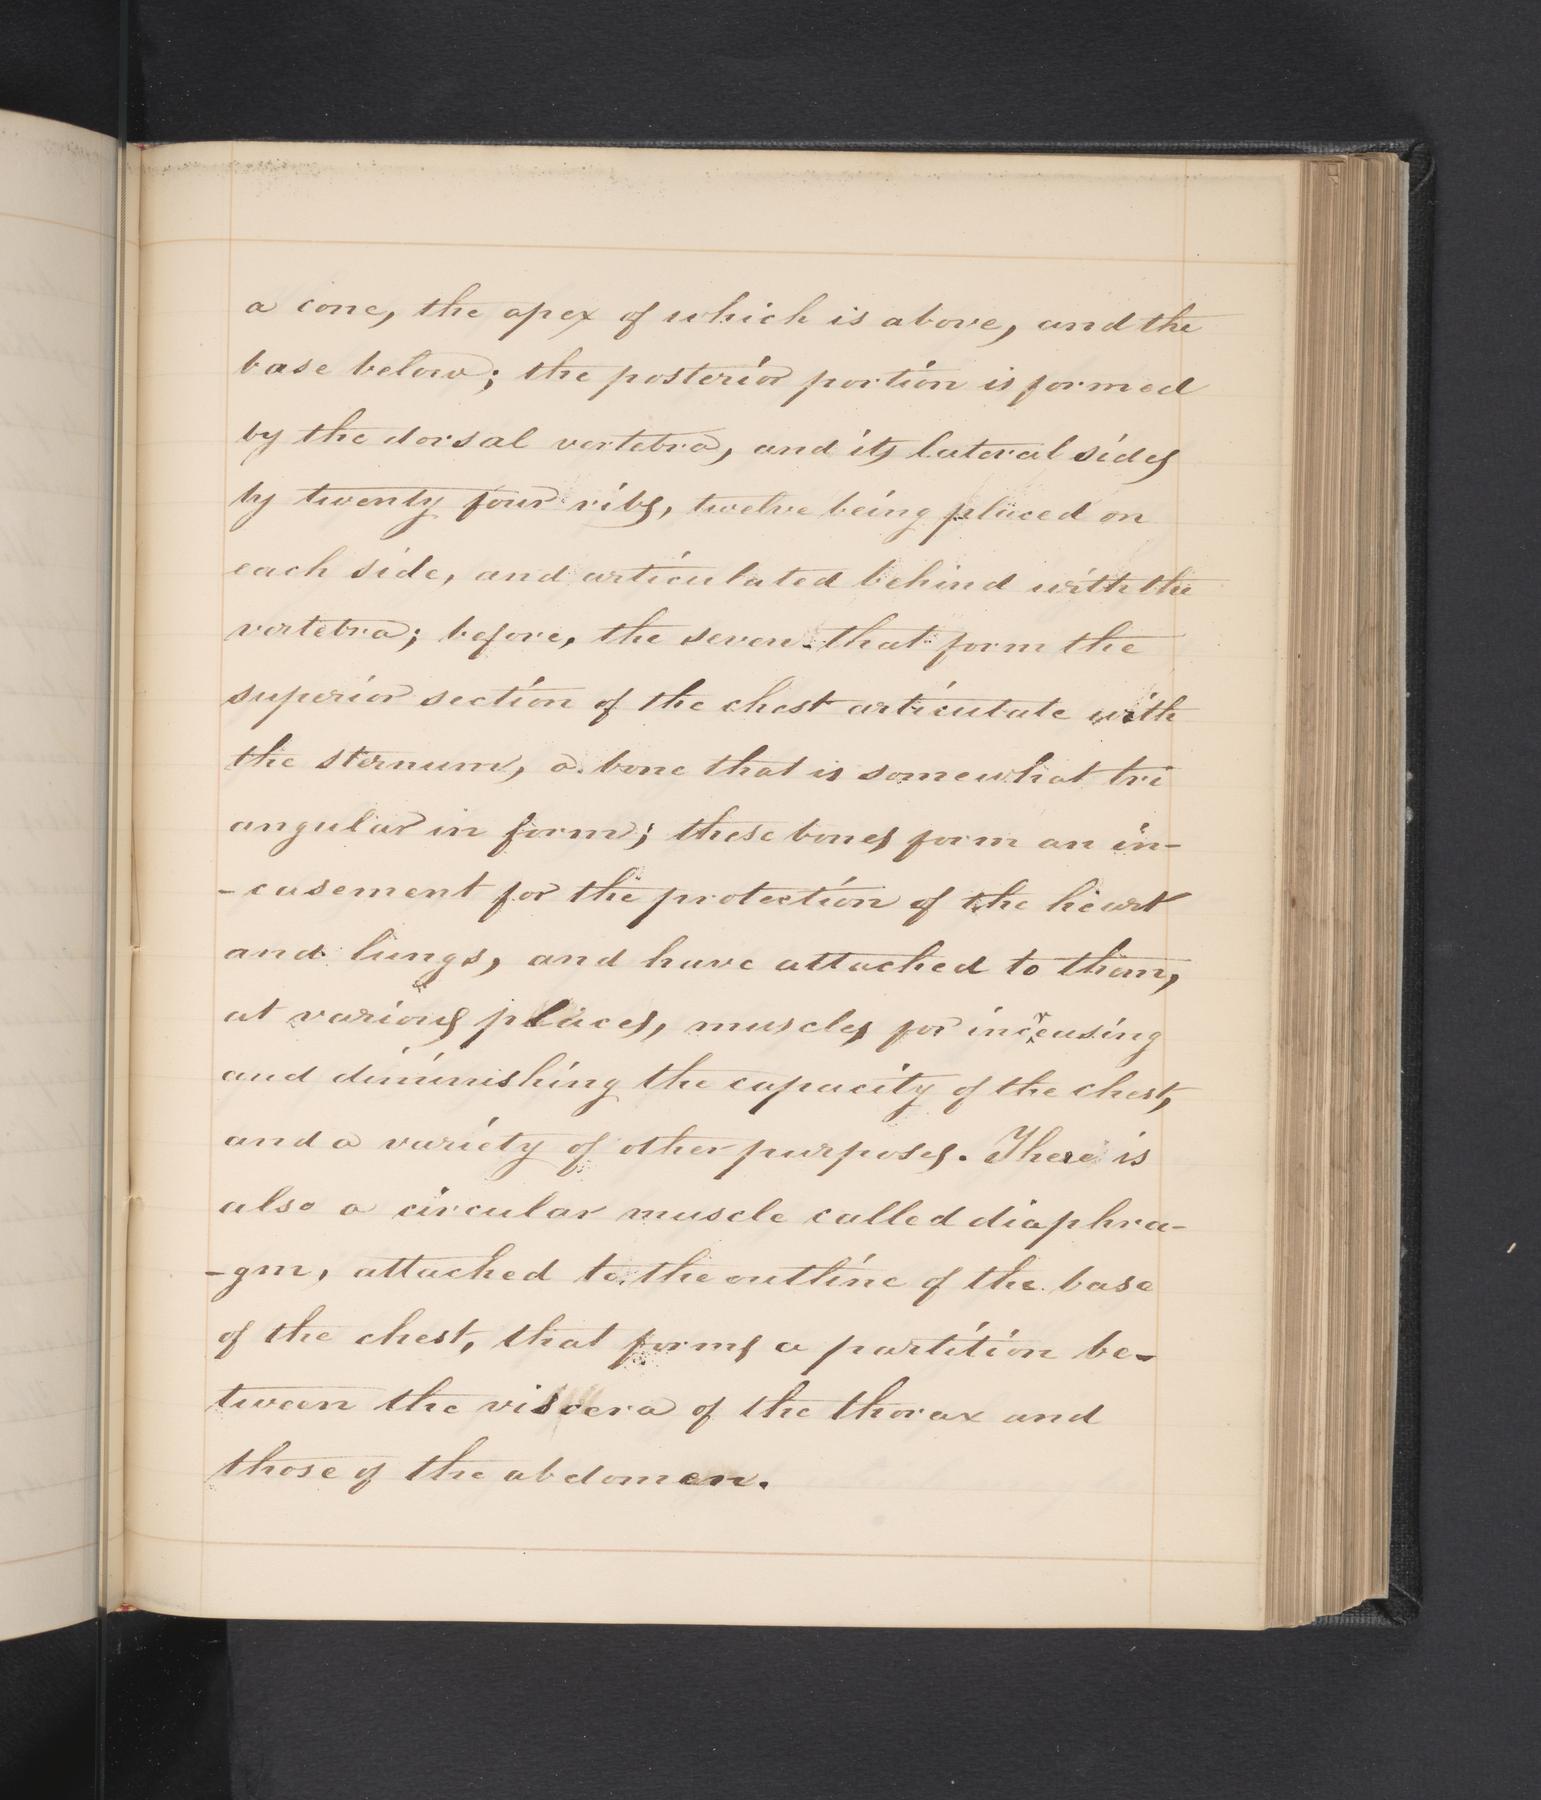 a cone, the apex of which is above, and the
base below; the posterior portion is formed
by the dorsal vertebra, and its lateral sides
by twenty four ribs, twelve being placed on
each side, and articulated behind with the
vertebra; before, the seven that form the
superior section of the chest articulate with
the sternum, a bone that is somewhat tri
angular in form; these bones form an in-
-casement for the protection of the heart
and lungs, and have attached to them,
at various places, muscles for increasing
and diminishing the capacity of the chest,
and a variety of other purposes. There is
also a circular muscle called diaphra-
-gm, attached to the outline of the base
of the chest, that forms a partition be-
tween the viscera of the thorax and
those of the abdomen.